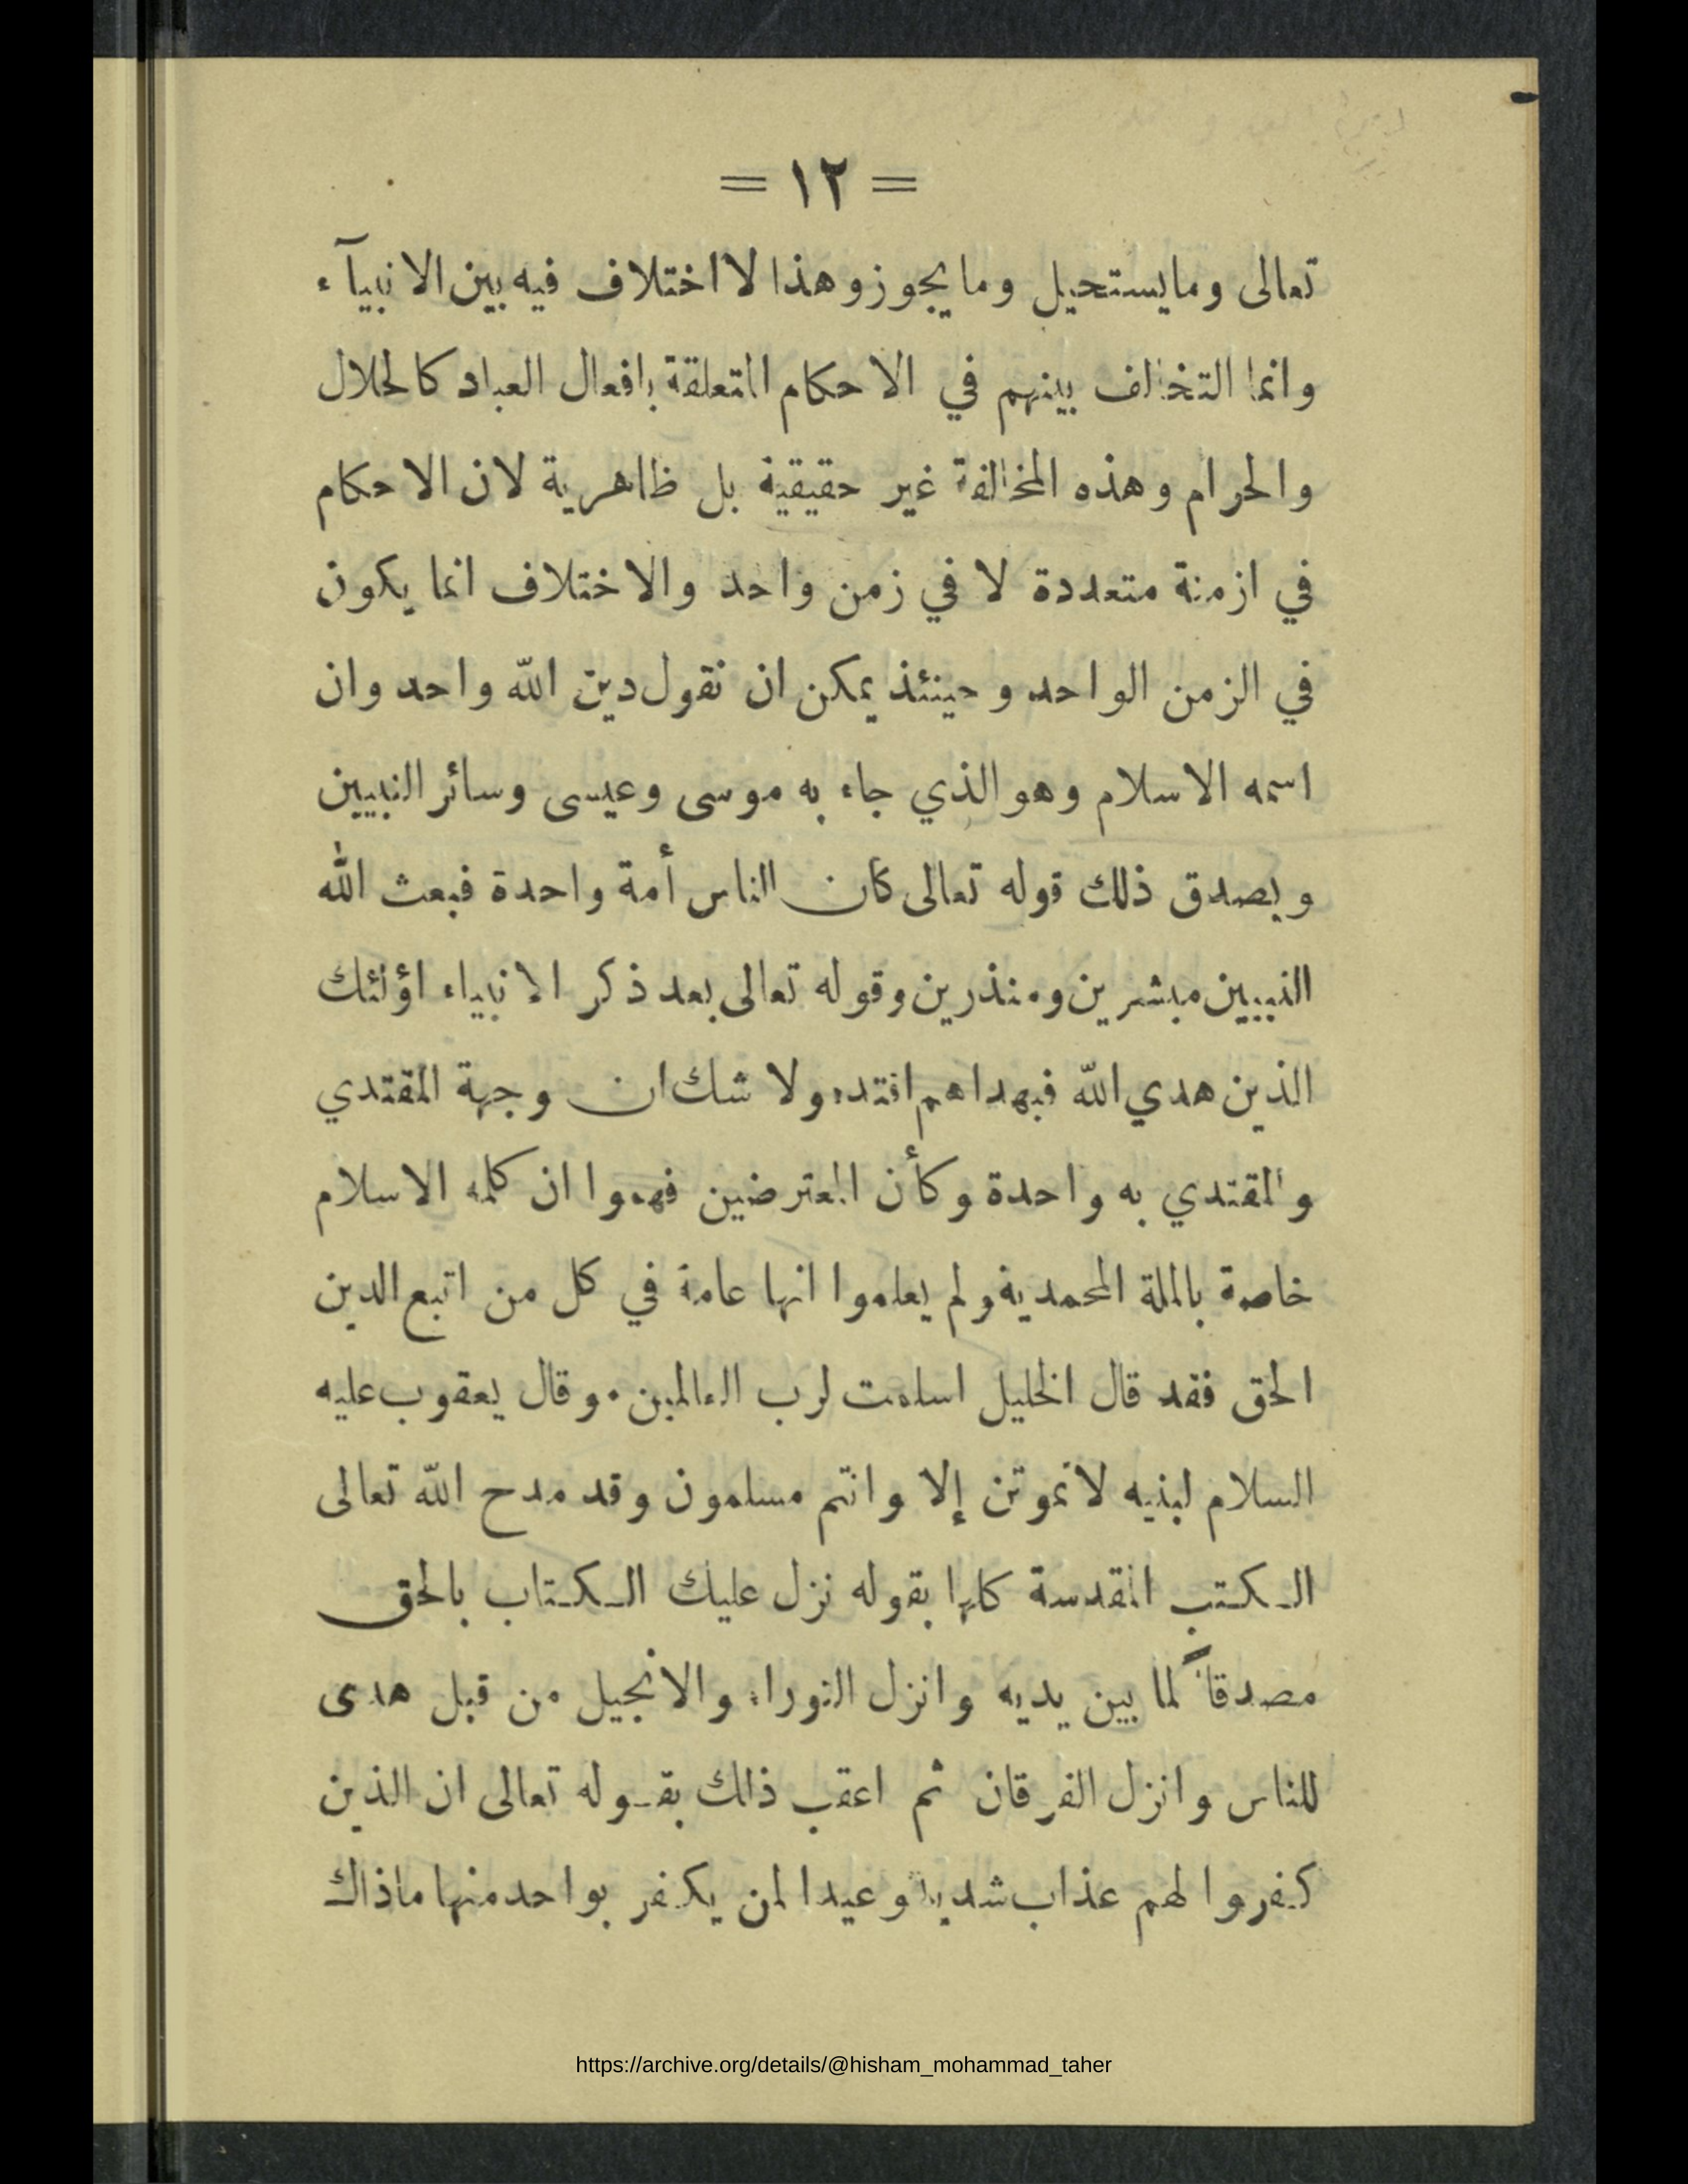 = ١٢ =
تعالى وما يستحيل وما يجوز وهذا لا اختلاف فيه بين الانبيآء
وانما التخالف بينهم في الاحكام المتعلقة بافعال العباد كالحلال
والحرام وهذه المخالفة غير حقيقية بل ظاهرية لان الاحكام
في ازمنة متعددة لا في زمن واحد والاختلاف انما يكون
في الزمن الواحد وحينئذ يمكن ان نقول دين الله واحد وان
اسمه الاسلام وهو الذي جاء به موسى وعيسى وسائر النبيين
ويصدق ذلك قوله تعالى كان الناس أمة واحدة فبعث الله
النبيين مبشرين ومنذرين وقوله تعالى بعد ذكر الانبياء اؤلئك
الذين هدي الله فبهداهم اقتده ولا شك ان وجهة المقتدي
والمقتدي به واحدة وكأن المعترضين فهموا ان كلمه الاسلام
خاصة بالملة المحمدية ولم يعلموا انها عامة في كل من اتبع الدين
الحق فقد قال الخليل اسلمت لرب العالمين · وقال يعقوب عليه
السلام لبنيه لا تموتن إلا وانتم مسلمون وقد مدح الله تعالى
الكتب المقدسة كلها بقوله نزل عليك الكتاب بالحق
مصدقاً لما بين يديه وانزل التوراة والانجيل من قبل هدى
للناس وانزل الفرقان ثم اعقب ذلك بقوله تعالى ان الذين
كفروا لهم عذاب شديد وعيدا لمن يكفر بواحد منها ماذاك
https://archive.org/details/@hisham_mohammad_taher